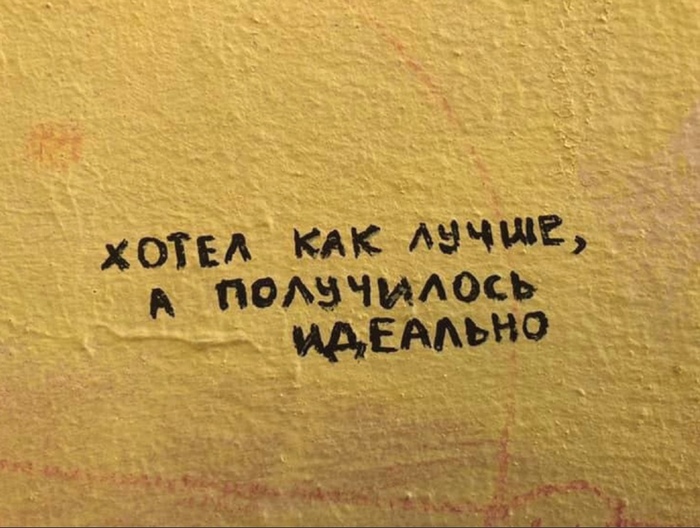 ХОТЕЛ КАК ЛУЧШЕ,
А ПОЛУЧИЛОСЬ
ИДЕАЛЬНО